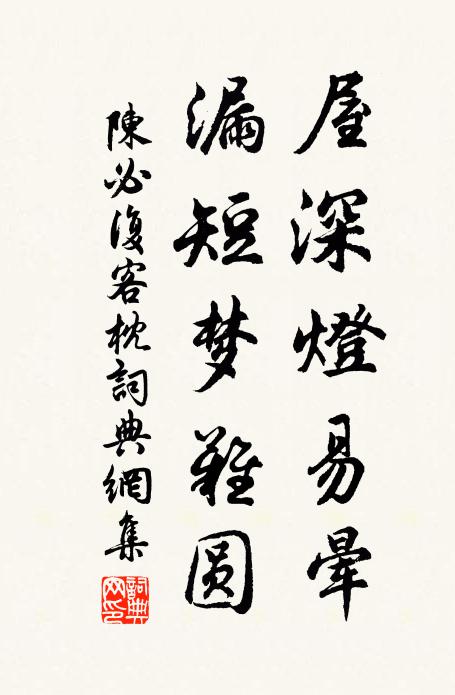 屋深燈易暈
漏短梦難圆
陳必復客枕詞典網集
詞典网印